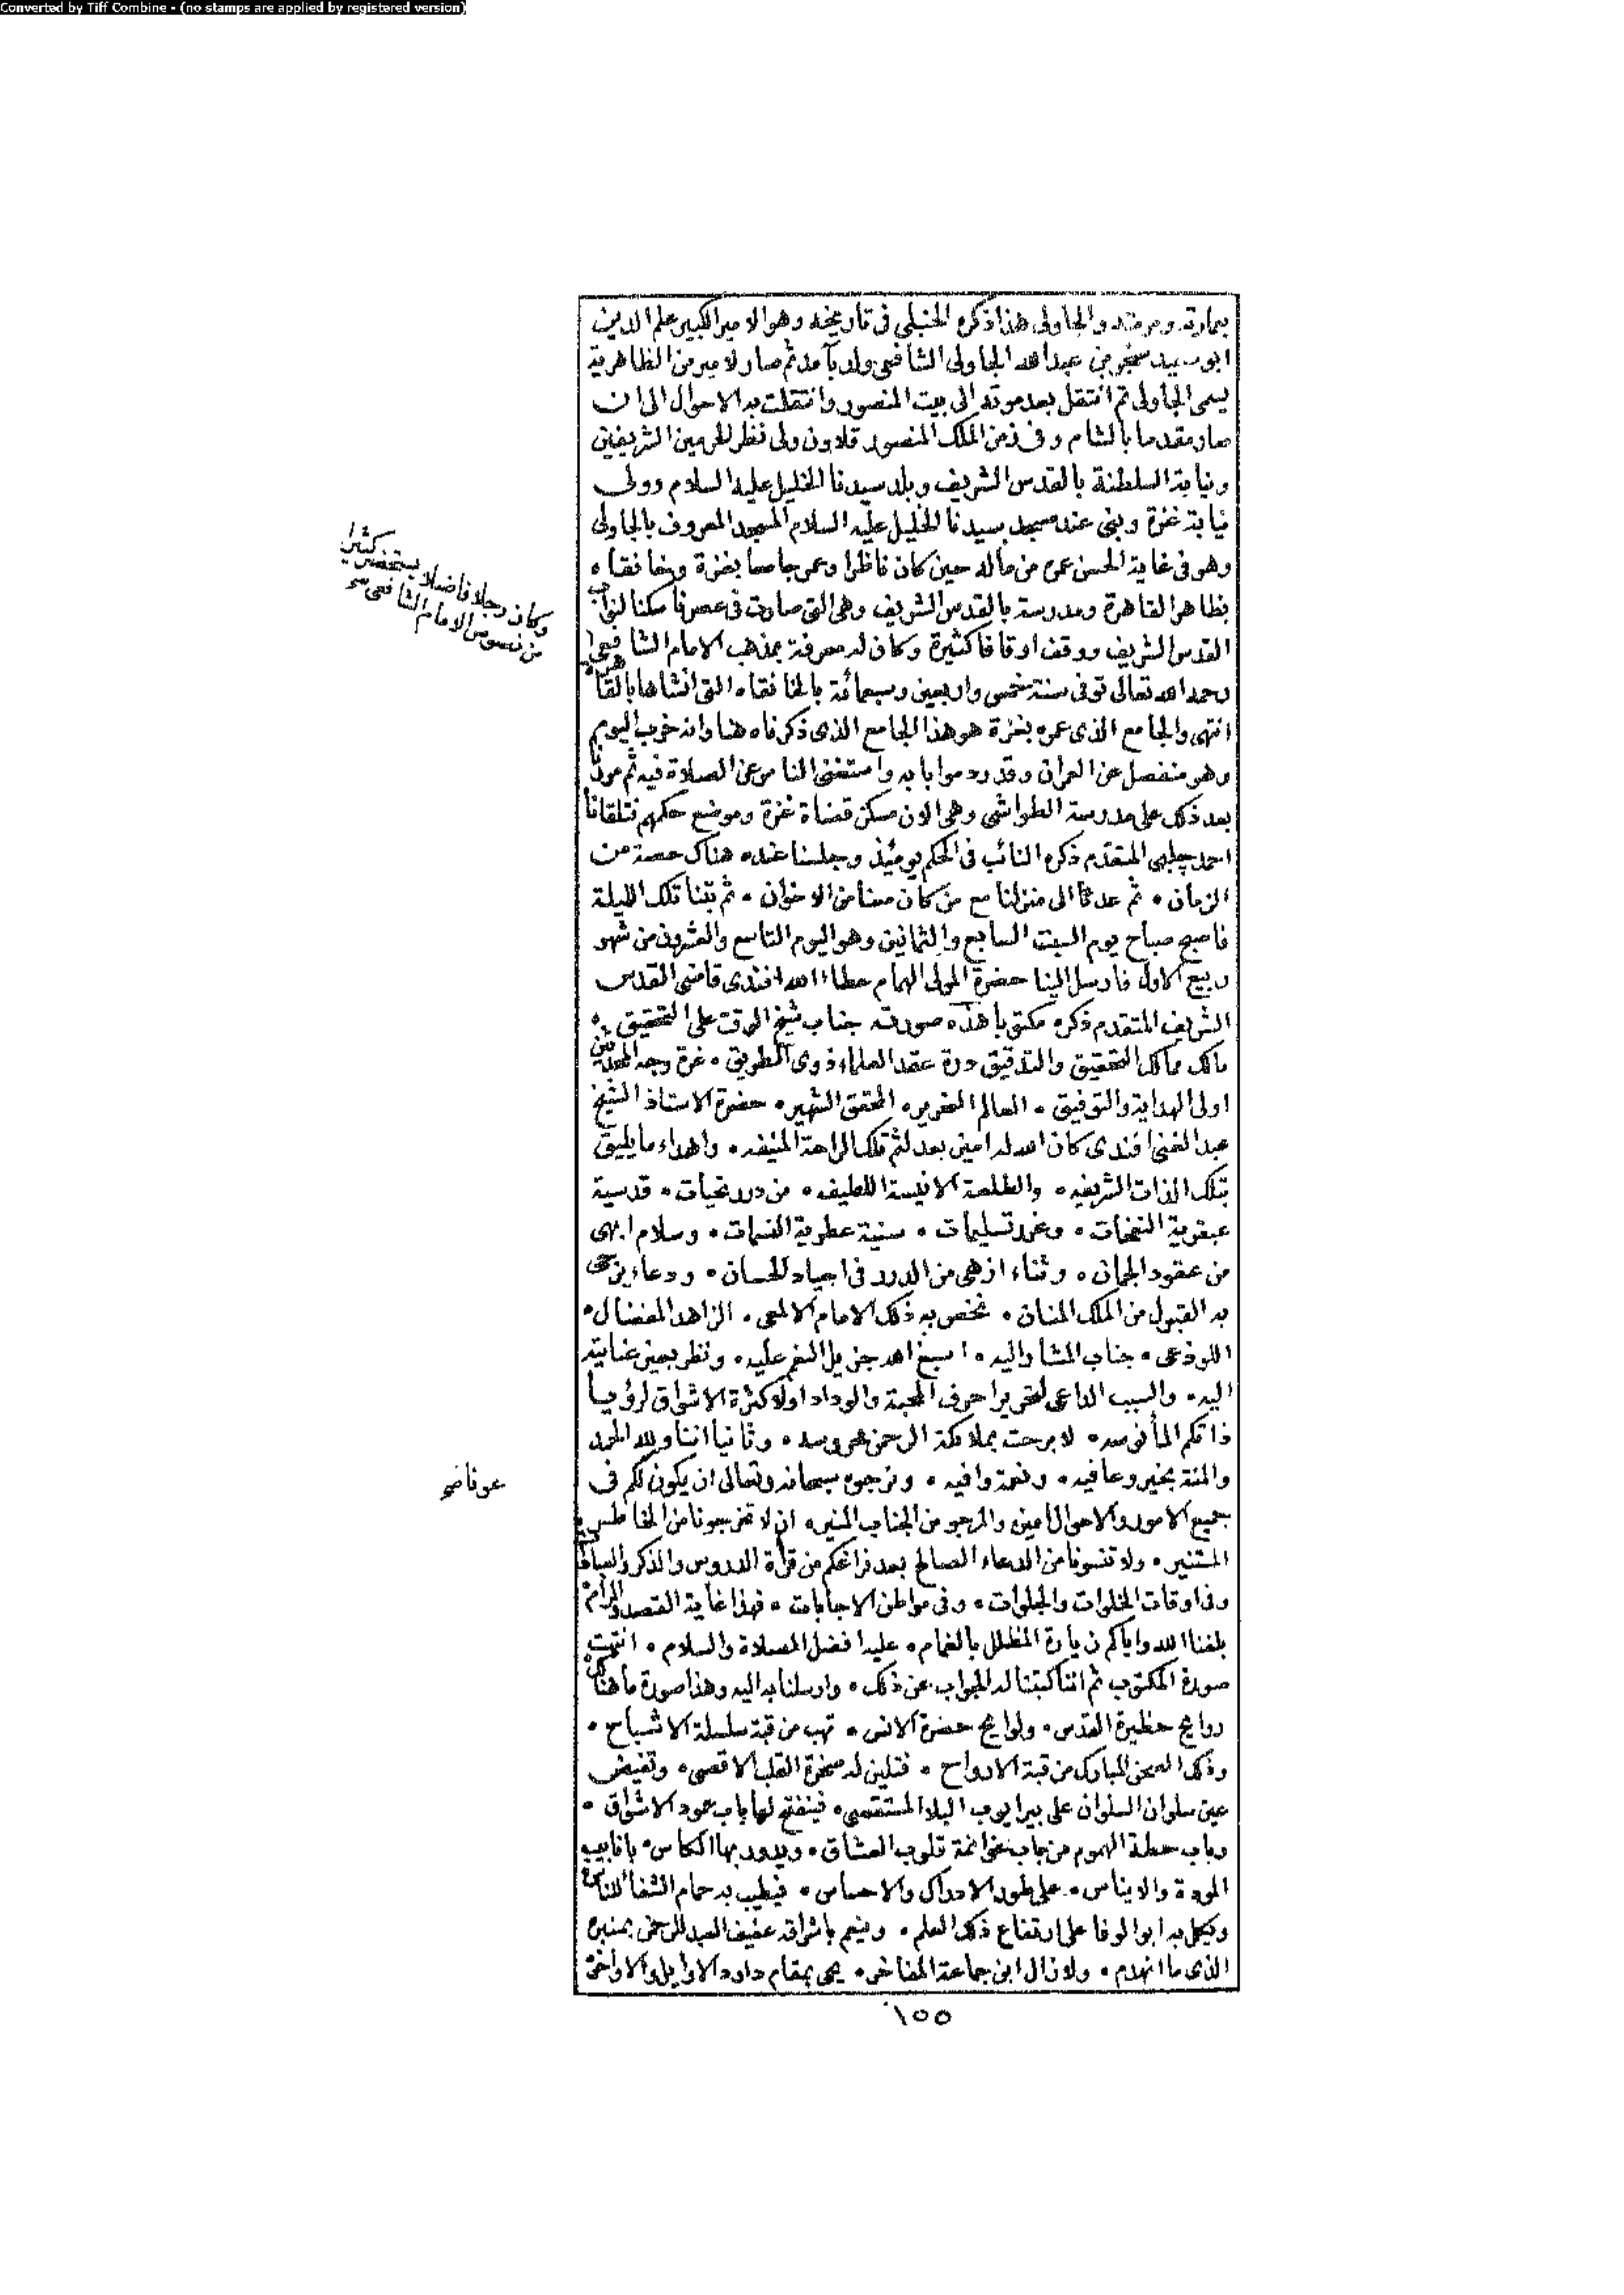 Converted by Tiff Combine - (no stamps are applied by registered version)
بعمارته ومرمته والجاولى هذا ذكره الحنبلى فى تاريخه وهو الامير الكبير علم الدين
ابو سعيد سنجر بن عبد الله الجاولى الشافعى ولد بآمد ثم صار لامير من الظاهرية
يسمى الجاولى ثم انتقل بعد موته الى بيت المنصور وانتقلت به الاحوال الى ان
صار مقدما بالشام وفى زمن الملك المنصور قلاون ولى نظر الحرمين الشريفين
ونيابة السلطنة بالقدس الشريف وبلد سيدنا الخليل عليه السلام وولى
نيابة غزة وبنى عند مسجد سيدنا الخليل عليه السلام المسجد المعروف بالجاولى
وهو فى غاية الحسن عمره من ماله حين كان ناظرا وعمر جامعا بغزة وخانقاه
بظاهر القاهرة ومدرسة بالقدس الشريف وهى التى صارت فى عصرنا سكنا لنواب
القدس الشريف ووقف اوقافا كثيرة وكان له معرفة بمذهب الامام الشافعى
وكان رجلا فاضلا يستحضر كثيرا
من نصوص الامام الشافعى صح
رحمه الله تعالى توفى سنة خمس واربعين وسبعمائة بالخانقاه التى انشاها بالقاهرة
انتهى والجامع الذى عمره بغزة هو هذا الجامع الذى ذكرناه هنا وانه خرب اليوم
وهو منفصل عن العمران وقد ردموا بابه واستغنى الناس عن الصلاة فيه ثم مررنا
بعد ذلك على مدرسة الطواشى وهى الان مسكن قضاة غزة وموضع حكمهم فتلقانا
احمد چلبى المتقدم ذكره النائب فى الحكم يومئذ وجلسنا عنده هناك حصة من
الزمان ٥ ثم عدنا الى منزلنا مع من كان معنا من الاخوان ٥ ثم بتنا تلك الليلة
فاصبح صباح يوم السبت السابع والثمانين وهو اليوم التاسع والعشرون من شهر
ربيع الاول فارسل الينا حضرة المولى الهمام عطاء الله افندى قاضى القدس
الشريف المتقدم ذكره مكتوبا هذه صورته جناب شيخ الوقت على التحقيق ٥
مالك ممالك التحقيق والتدقيق درة عقد العلماء ذوى الطريق ٥ غرة وجه
اولى الهداية والتوفيق ٥ العالم النحرير ٥ المحقق الشهير ٥ حضرة الاستاذ الشيخ
عبد الغنى افندى كان الله له امين بعد لثم تلك الراحة المنيفه ٥ واهداء ما يليق
بتلك الذات الشريفه ٥ والطلعة الانيسة اللطيفه ٥ من درر تحيات ٥ قدسية
عبقرية النفحات ٥ وغرر تسليمات ٥ سنية عطرية النسمات ٥ وسلام ابهى
من عقود الجمان ٥ وثناء ازهى من الدرر فى اجياد الحسان ٥ ودعاء يرتجى
به القبول من الملك المنان ٥ نخص به ذلك الامام الالمعى ٥ الزاهد المفضال ٥
اللوذعى ٥ جناب المشار اليه ٥ اسبغ الله جزيل النعم عليه ٥ ونظر بعين عنايته
اليه ٥ والسبب الداعى لتحرير احرف المحبة والوداد اولا كثرة الاشواق لرؤيا
ذاتكم المأنوسه ٥ لا برحت بملائكة الرحمن محروسه ٥ وثانيا اننا ولله الحمد
والمنة بخير وعافيه ٥ ونعمة وافيه ٥ ونرجوه سبحانه وتعالى ان يكون لكم فى
عونا صح
جميع الامور والاحوال امين والمرجو من الجناب المنيره ان لا تخرجونا من الخاطر
المستنير ٥ ولا تنسونا من الدعاء الصالح بعد فراغكم من قرأة الدروس والذكر
وفى اوقات الخلوات والجلوات ٥ وفى مواطن الاجابات ٥ فهذا غاية القصد والمرام
بلغنا الله واياكم زيارة المظلل بالغمام ٥ عليه افضل الصلاة والسلام ٥ انتهت
صورة المكتوب ثم اننا كتبنا له الجواب عن ذلك ٥ وارسلنا به اليه وهذا صورة ما هنالك
روايح حظيرة القدس ٥ ولوايح حضرة الانس ٥ تهب من قبة سلسلة الاشباح ٥
وذلك الصحن المبارك من قبة الارواح ٥ فتلين له صخرة القلب الاقصى ٥ وتفيض
عين سلوان السلوان على بير ايوب البلا المستقصى ٥ فينفتح لها باب عمود الاشواق ٥
وباب حطة الهموم من جاب غوانمة قلوب العشاق ٥ ويدور بها الكاس ٥ بانابيب
المودة والايناس ٥ على طور الادراك والاحساس ٥ فيطيب به حمام الشفا للناس
ويكمل به ابو الوفا على ارتفاع ذلك العلم ٥ وينعم باشراقه عفيف العبد للرحمن بمنبره
الذى ما انهدم ٥ ولا زال ابن جماعة المفاخر ٥ يحيى بمقام داود الاوايل والاواخر
١٥٥